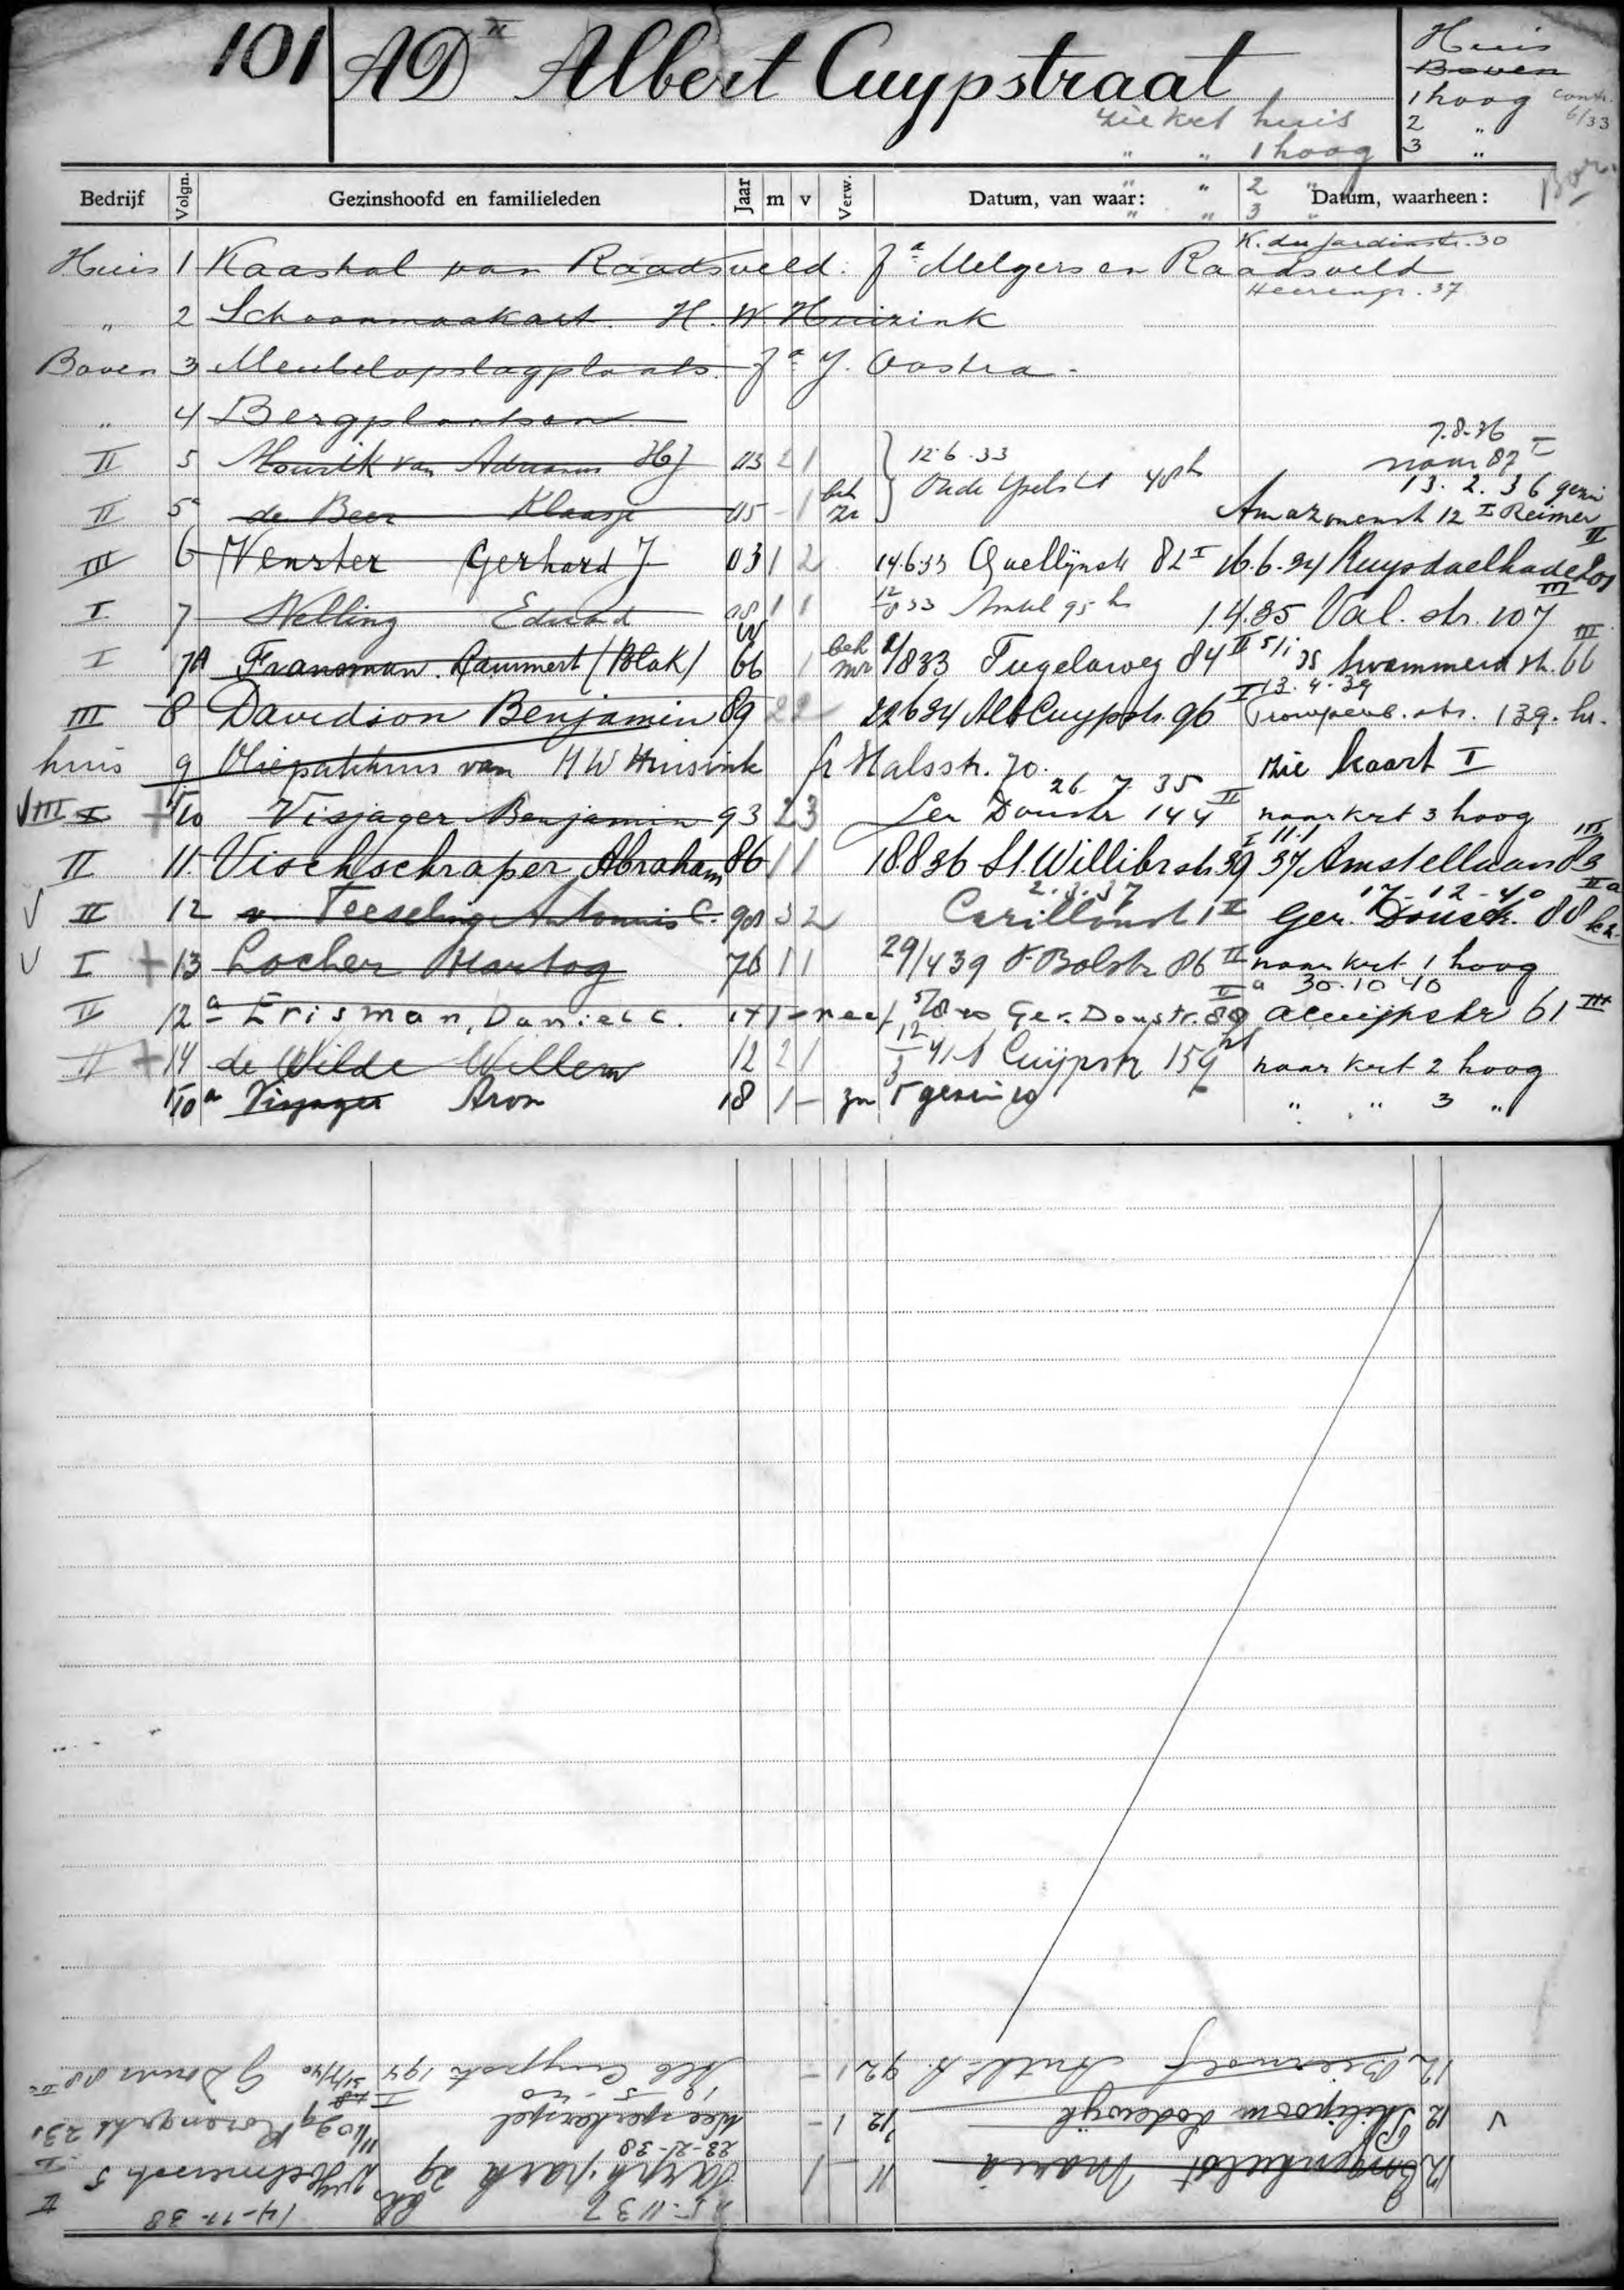 101 AD II Albert Cuypstraat
Huis
Boven
1 hoog contr. 6/33
2 "
3 "
zie krt huis
" " 1 hoog
" " 2 "
" " 3 "
Bedrijf Volgn. Gezinshoofd en familieleden Jaar m v Verw. Datum, van waar: Datum, waarheen:
K. du Jardinstr. 30
Huis 1 Kaashal van Raadsveld. fa Melgers en Raadsveld
Heerengr. 37
" 2 Schoonmaakart. H. W. Huizink
Boven 3 Meubelopslagplaats. fa J. Oostra
" 4 Bergplaatsen
7.8.36
II 5 Mourik van Adrianus HJ 03 2 1 12.6.33 naar 87 I
13.2.36 gezin
II 5a de Beer Klaasje 05 - 1 beh zr Oude 48h Amazonenst 12 I Reimer
III 6 Venster Gerhard J 03 1 2 14.6.33 Quellijnstr 82 I 16.6.34 Ruysdaelkade 209 II
I 7 Welling Eduard 08 1 1 12/8 33 Amstel 95 hs 1.4.35 Val. str. 107 III
I 7A Fransman. Rammert (Blok) W 66 1 beh mr /833 Tugelaweg 84 II 5/1 35 Swammerd str. 66 III
13.4.39
III 8 Davidson Benjamin 89 2 2 22634 Alb Cuypstr. 96 I Trompenb. str. 139. hs.
huis 9 van H W Huisink fr Halsstr. 70. zie kaart I
26.7.35
III I 10 Visjager Benjamin 93 2 3 Ger Doustr 144 II naar krt 3 hoog
II 11. Vischschraper, Abraham 86 1 1 18836 St. Willibrstr. 39 I 11.1 37 Amstellaan 83 III
2.3.37 17-12-40
II 12 v. Teeseling Antonius C. 908 3 2 Carillonst 1 II Ger. Doustr. 88 IIa
I 13 Locher Hartog 76 1 1 29/4 39 F. Bolstr 86 II naar krt 1 hoog
30.10 40
II 12a Erisman, Daniel C. 17 1 - neef 5/8 40 Ger. Doustr. 88 IIa Acuijpstr 61 III
II 14 de Wilde Willem 12 2 1 12/3 41 A Cuijpstr 159 hs naar krt 2 hoog
10a Visjager Aron 18 1 - zn gezin 10 " " 3 "
25-11 37 14-11-38
12 Maria 11 - 1 Sarph. park 29 5 II
23-2-38
12 Philipoom Lodewijk 12 1 - Weesperkerspel 11/10 39 Rozengracht 231
19-5-40
12 92 1 - Alb Cuypstr 194 I 31/7/40 G Doustr 88 IIa